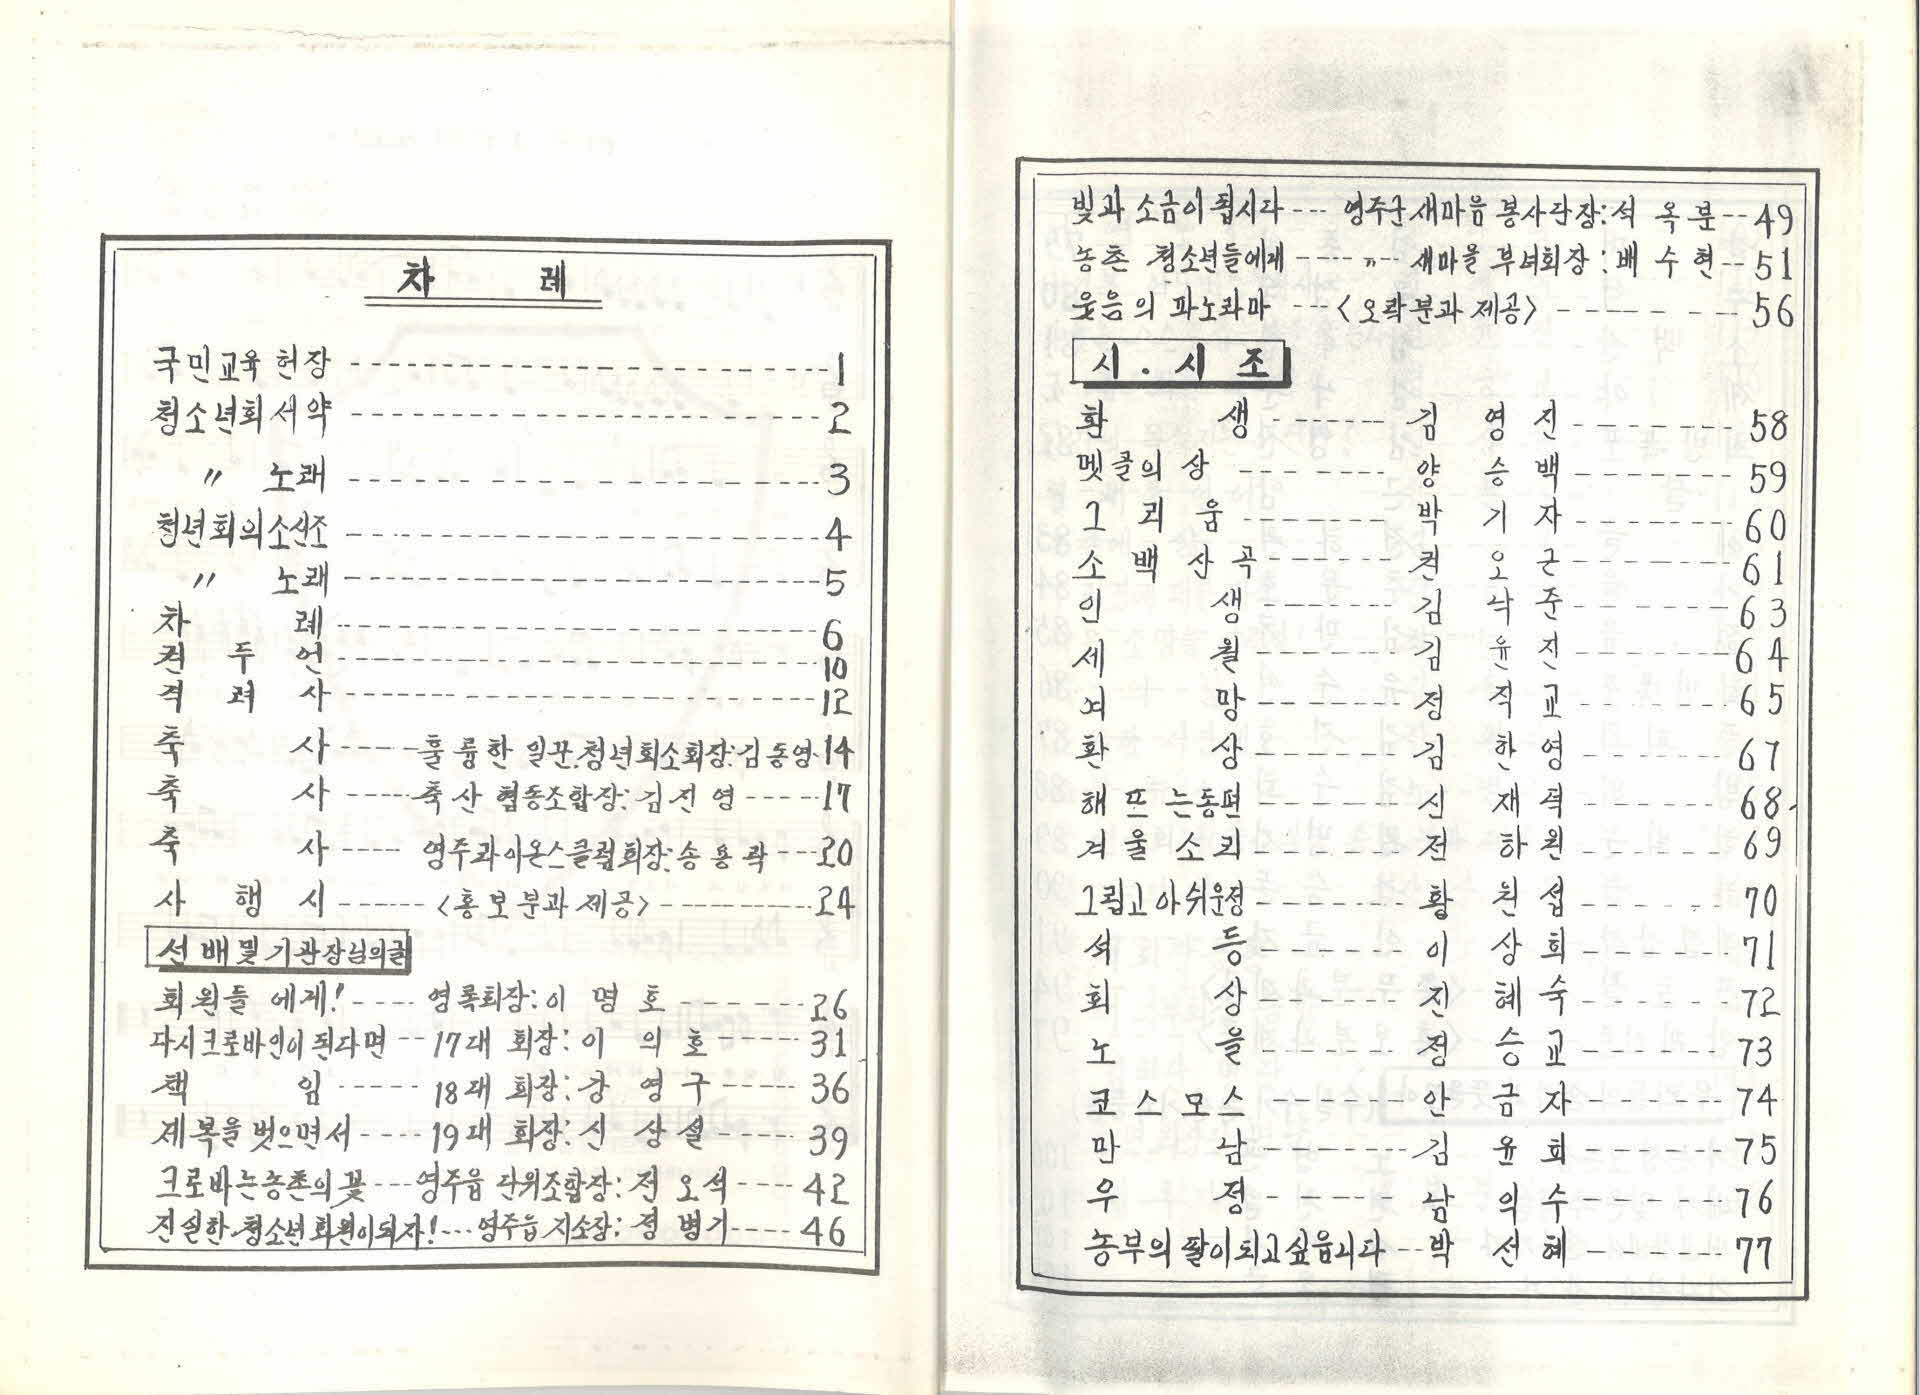 차 례
국민교육 헌장 ---- 1
청소년회 서약 ---- 2
〃 노래 ---- 3
청년회의소신조 ---- 4
〃 노래 ---- 5
차 례 ---- 6
권 두 언 ---- 10
격 려 사 ---- 12
축 사 ---- 훌륭한 일꾼.청년회소회장:김동영 14
축 사 ---- 축산 협동조합장: 김진영 ---- 17
축 사 ---- 영주라이온스클럽회장:송용락 -- 20
사 행 시 ---- <홍보분과 제공> ---- 24
선배및 기관장님의글
회원들 에게! ---- 영록회장:이 명 호 ---- 26
다시크로바인이 된다면 -- 17대 회장: 이 의 호 ---- 31
책 임 ---- 18대 회장:강 영 구 ---- 36
제복을 벗으면서 ---- 19대 회장:신 상 설 ---- 39
크로바는농촌의 꽃 --- 영주읍 단위조합장: 전 오 석 --- 42
진실한.청소년회원이되자!... 영주읍 지소장: 정 병 기 ---- 46
빛과 소금이 됩시다 --- 영주군새마음 봉사단장:석 옥 분 -- 49
농촌 청소년들에게 ---- 〃 새마을 부녀회장:배 수 현 -- 51
웃음의 파노라마 --- <오락분과 제공> ---- 56
시 . 시 조
환 생 ---- 김 영 진 ---- 58
멧골의 상 ---- 양 승 백 ---- 59
그 리 움 ---- 박 기 자 ---- 60
소 백 산 곡 ---- 권 오 근 ---- 61
인 생 ---- 김 낙 준 ---- 63
세 월 ---- 김 윤 진 ---- 64
뇌 망 ---- 정 직 교 ---- 65
환 상 ---- 김 한 영 ---- 67
해 뜨 는동편 ---- 신 재 력 ---- 68
겨 울 소 리 ---- 전 하 원 ---- 69
그립고 아쉬운정 ---- 황 원 섭 ---- 70
석 등 ---- 이 상 희 ---- 71
회 상 ---- 진 혜 숙 ---- 72
노 을 ---- 정 승 교 ---- 73
코 스 모 스 ---- 안 금 자 ---- 74
만 남 ---- 김 윤 희 ---- 75
우 정 ---- 남 의 수 ---- 76
농부의 딸이되고싶읍니다 -- 박 선 혜 ---- 77